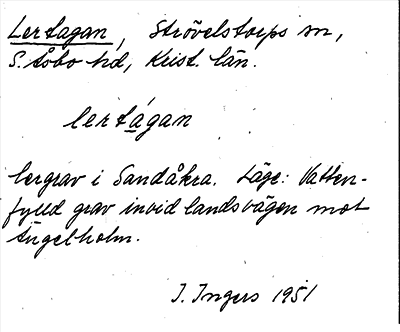 Lertagan, Strövelstorps sn,
S. Åsbo hd, Krist. län.
lertágan
lergrav i Sandåkra. Läge: Vatten-
fylld grav invid landsvägen mot
Ängelholm.
I. Ingers 1951